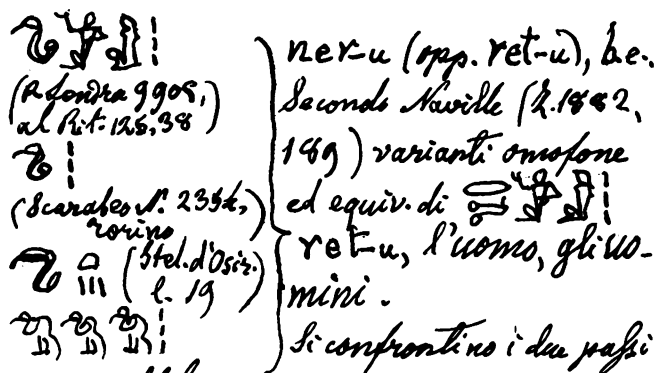 (P. Londra 9905,
al Rit. 125,38)
(Scarabeo N. 2354,
Torino)
(Stel. d'Osir.
l. 19
ner-u (opp. ret-u), b.e.
Secondo Naville (Z. 1882,
189) varianti omofone
ed equiv. di
ret-u, l'uomo, gli uo-
mini.
Si confrontino i due passi